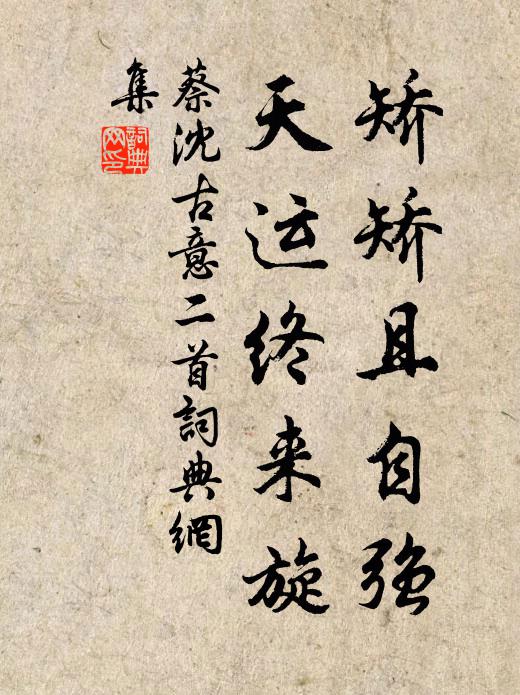 矫矫且自强
天运终来旋
蔡沈古意二首詞典網
集
詞典
网印